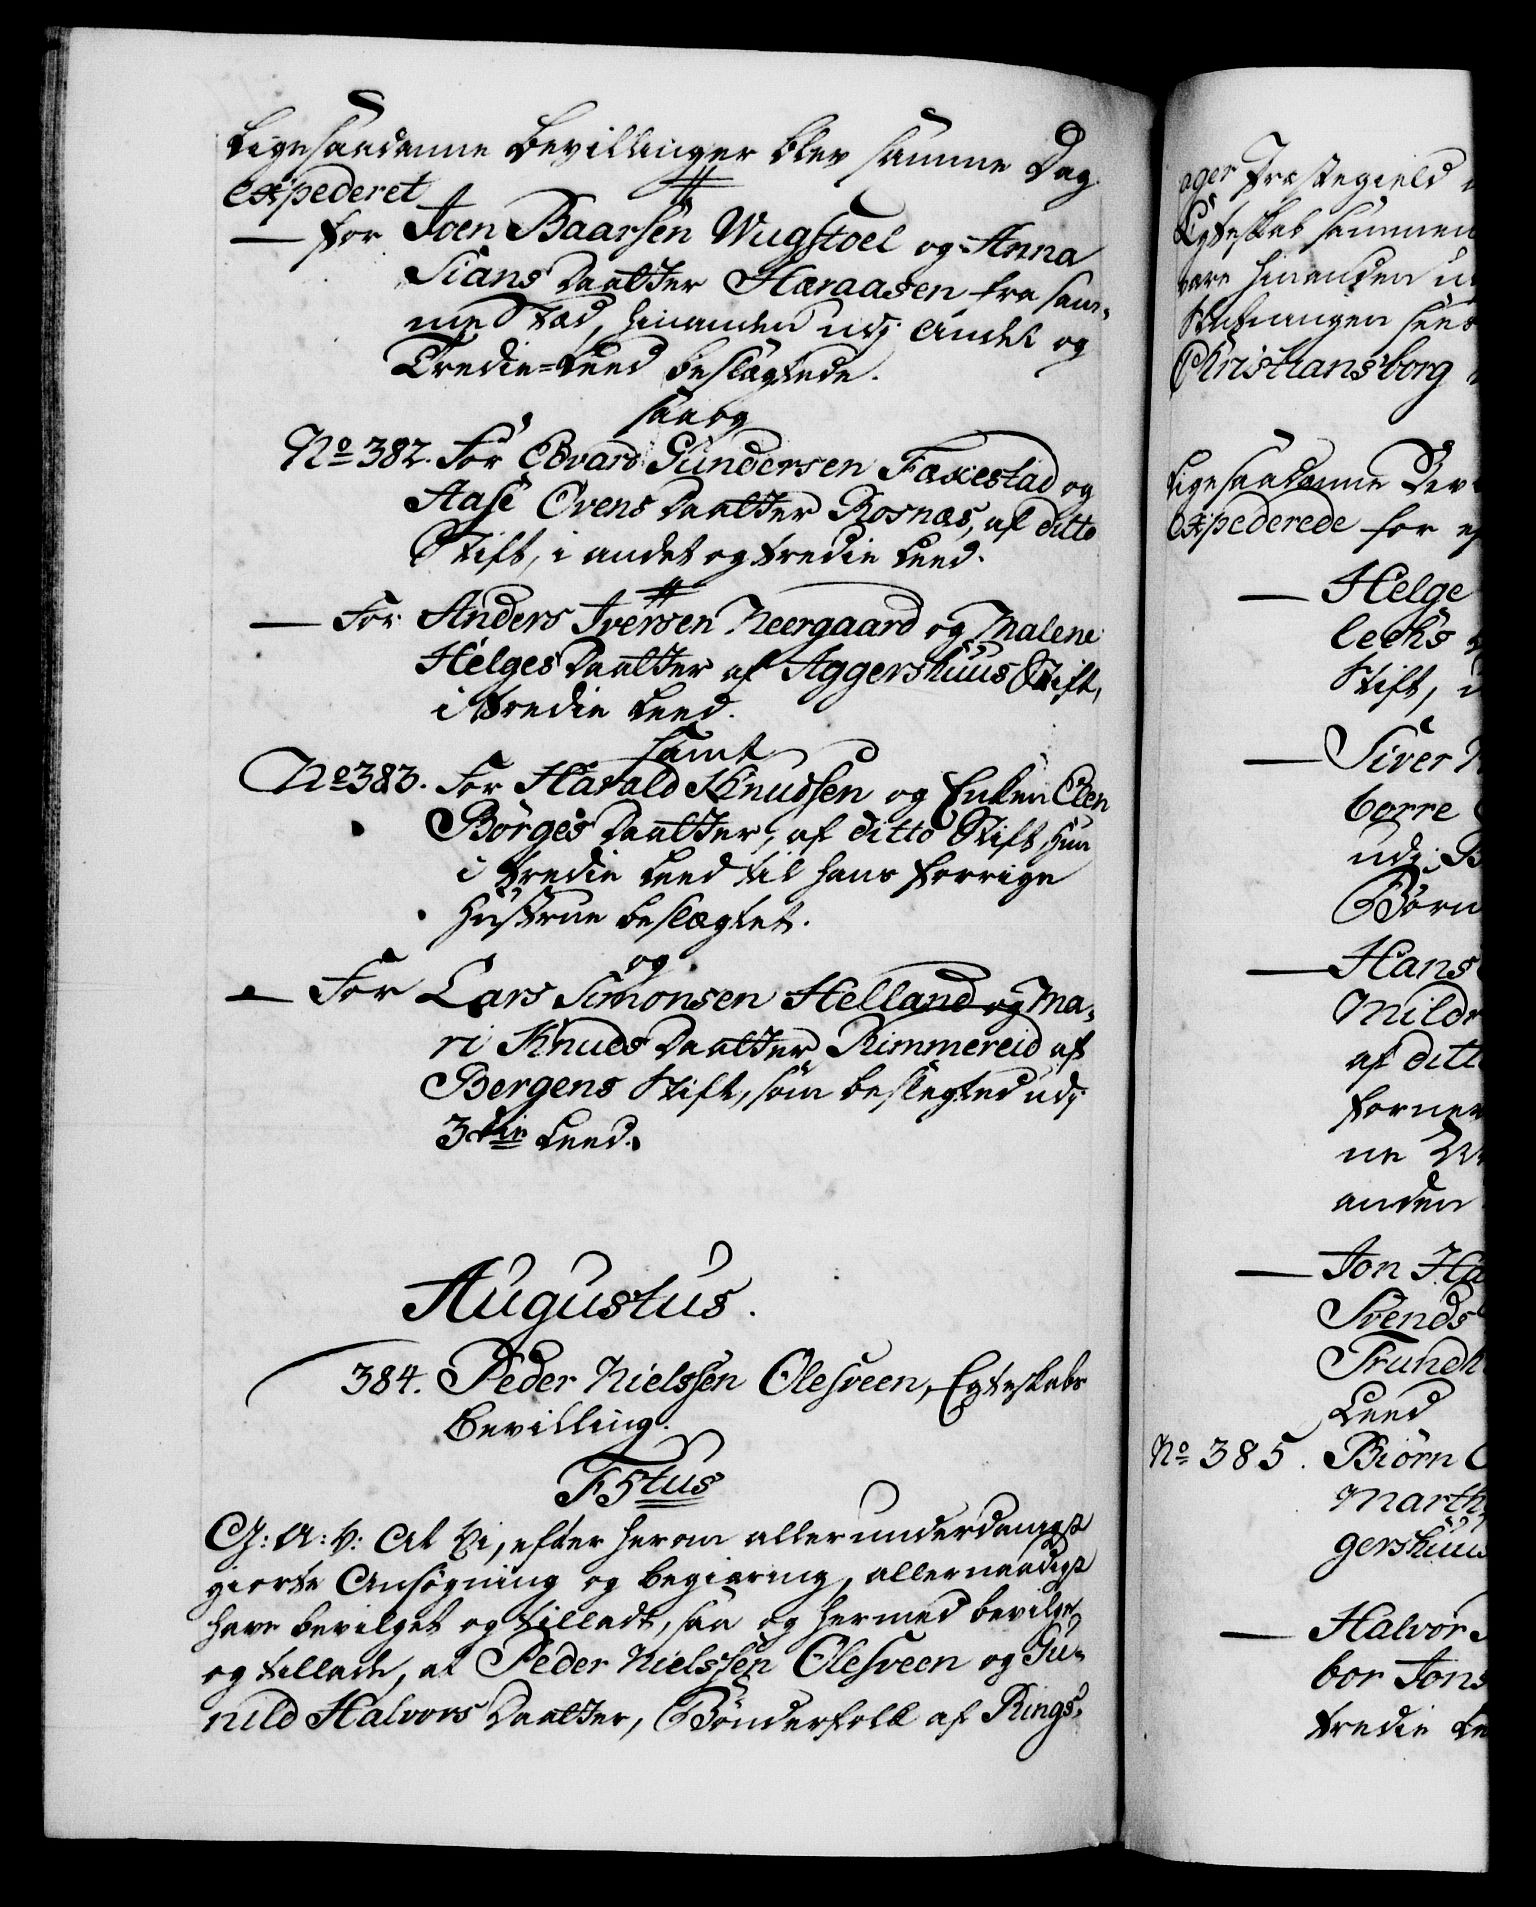 Ligesaadanne Bevillinger blev samme Dag
expederet
— for Joen Baarsen Wugstoel og Anna
Sians Daatter Hæraasen fra sam-
me Stæd, hinanden udj Andet og
Tredie-Leed beslægtede.
saa og
No 382. For Edvard Gundersen Faxestad og
Aase Evens Daatter Rosnæs, af ditto
Stift, i andet og tredie Leed.
— For Anders Iversen Neergaard og Malene
Helges Daatter af Aggershuus Stift,
i tredie Leed.
samt
No 383. For Harald Knudsen og Enken Elen
Børges Daatter, af ditto Stift, hun
i tredie Leed til hans forrige
Hustrue beslægtet.
og
— For Lars Simonsen Helland og Ma-
ri Knuds Daatter Rimmereid af
Bergens Stift, som beslegted udj
3die Leed.
Augustus.
384. Peder Nielssen Olesveen, Egteskabs
Bevilling.
F5tus
G: A: V: At Vi, efter herom allerunderdanigst
giorte Ansøgning og begiæring, allernaadigst
have bevilget og tilladt, saa og hermed bevilge
og tillade, at Peder Nielssen Olesveen og Gu-
nild Halvors Daatter, Bønderfolk af Rings-
ager Præstegield
Egteskab sammen
vare hinanden
Christiansborg
Ligesaadanne
expederede for
— Helge
lechs
Stift,
— Siver
borre
udj
Børn
— Hans
Mildr
af ditt
forne
ne
anden
— Jon Ha
Svends
Trundh
Leed
No 385. Biørn
Marth
gershuus
— Halvor
bor Jons
tredie Le